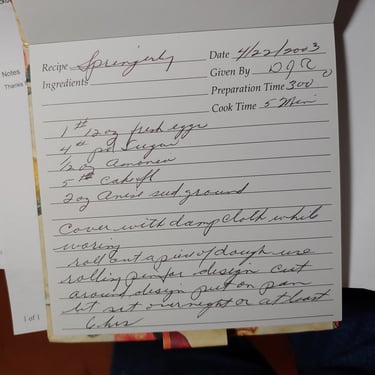 Notes
Thanks
Recipe Springerly Date 4/22/2003
Ingredients Given By DJR
Preparation Time 300
Cook Time 5 Min
1 # 12 oz fresh eggs
4 # pd sugar
1/2 oz amonea
5 # cake fl
2 oz Anise sud ground
Cover with damp cloth while
woring
roll out a piece of dough use
rolling pin for design cut
around design put on pan
let set overnight or at least
6 hrs
1 of 1